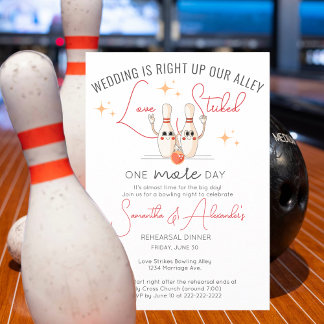 WEDDING IS RIGHT UP OUR ALLEY
Love Striked
ONE mole DAY
It's almost time for the big day!
Join us for a bowling night to celebrate
Samantha & Alexander's
REHEARSAL DINNER
FRIDAY, JUNE 30
Love Strikes Bowling Alley
1234 Marriage Ave.
start right after the rehearsal ends
Cross Church (around 7:00)
VP by June 10 at 222-222-2222